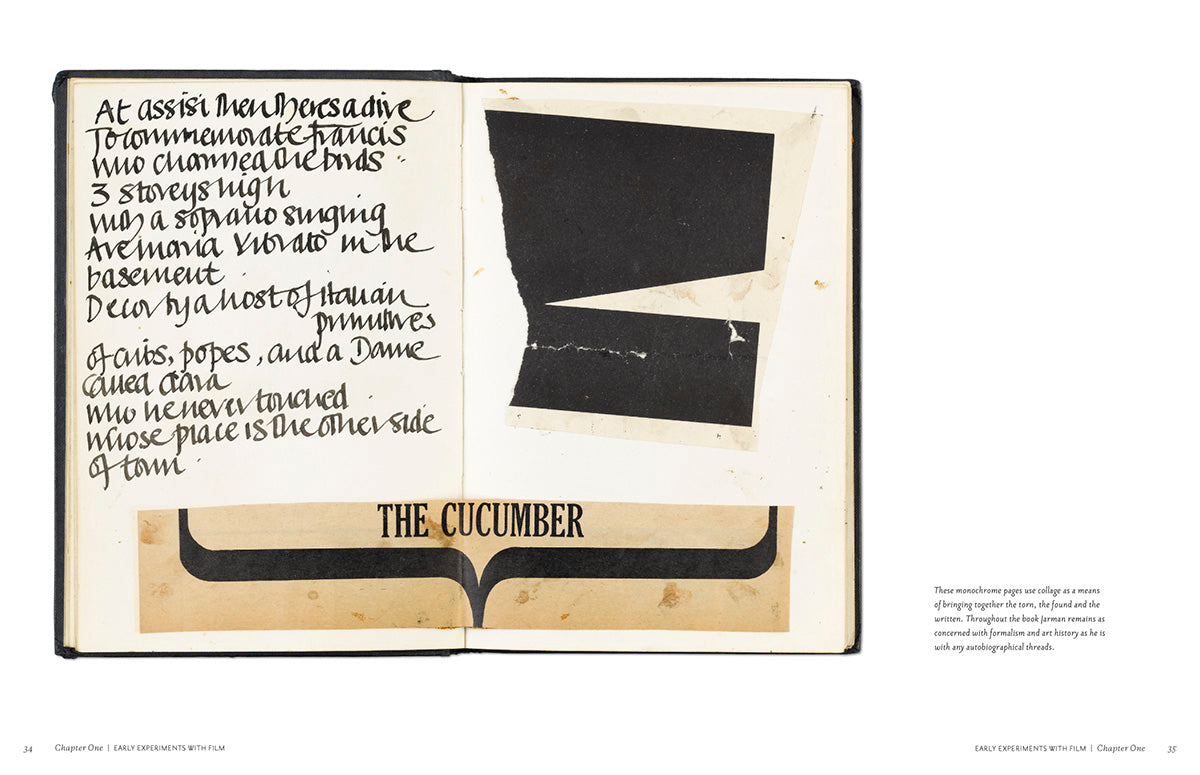 At assisi then theres a dive
To commemorate francis
who charmed the birds
3 storeys high
with a soprano singing
Ave maria Vibrato in the
basement
Decor by a host of italian
primitives
of cribs, popes, and a Dame
called Clara
who he never touched
whose place is the other side
of town
THE CUCUMBER
These monochrome pages use collage as a means
of bringing together the torn, the found and the
written. Throughout the book Jarman remains as
concerned with formalism and art history as he is
with any autobiographical threads.
34 Chapter One | EARLY EXPERIMENTS WITH FILM
EARLY EXPERIMENTS WITH FILM | Chapter One 35